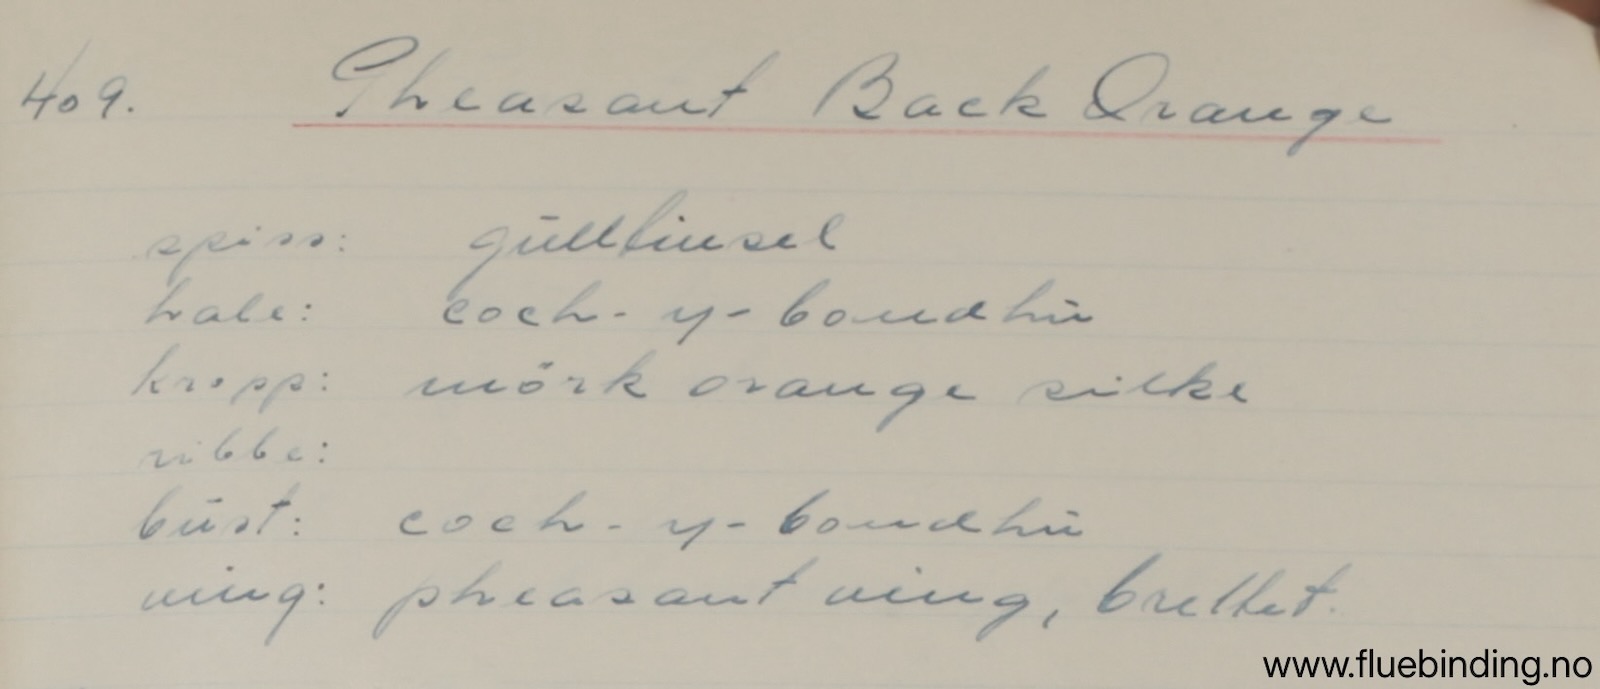 409. Pheasant Back Orange
spiss: gulltinsel
hale: coch-y-bondhu
kropp: mörk orange silke
ribbe:
bust: coch-y-bondhu
ving: pheasant ving, brettet.
www.fluebinding.no